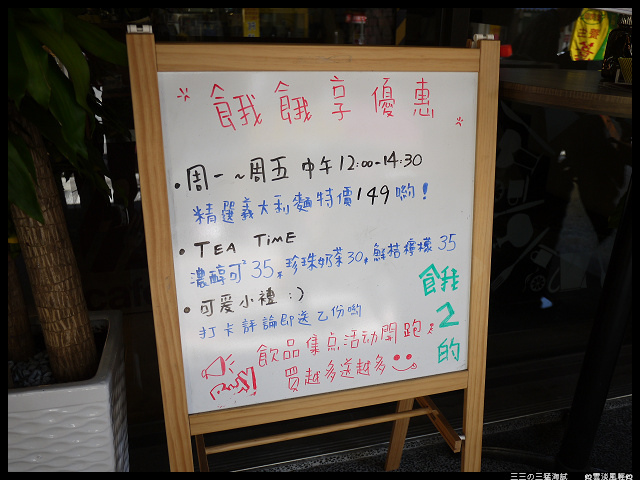 餓餓享優惠
•周一~周五 中午12:00-14:30
精選義大利麵特價149喲!
•TEA TIME
濃醇可² 35,珍珠奶茶30,鮮桔檸檬35
•可爱小禮 :)
打卡評論即送乙份喲
飲品集点活动開跑
買越多送越多
餓
2
的
三三の三猛海賊